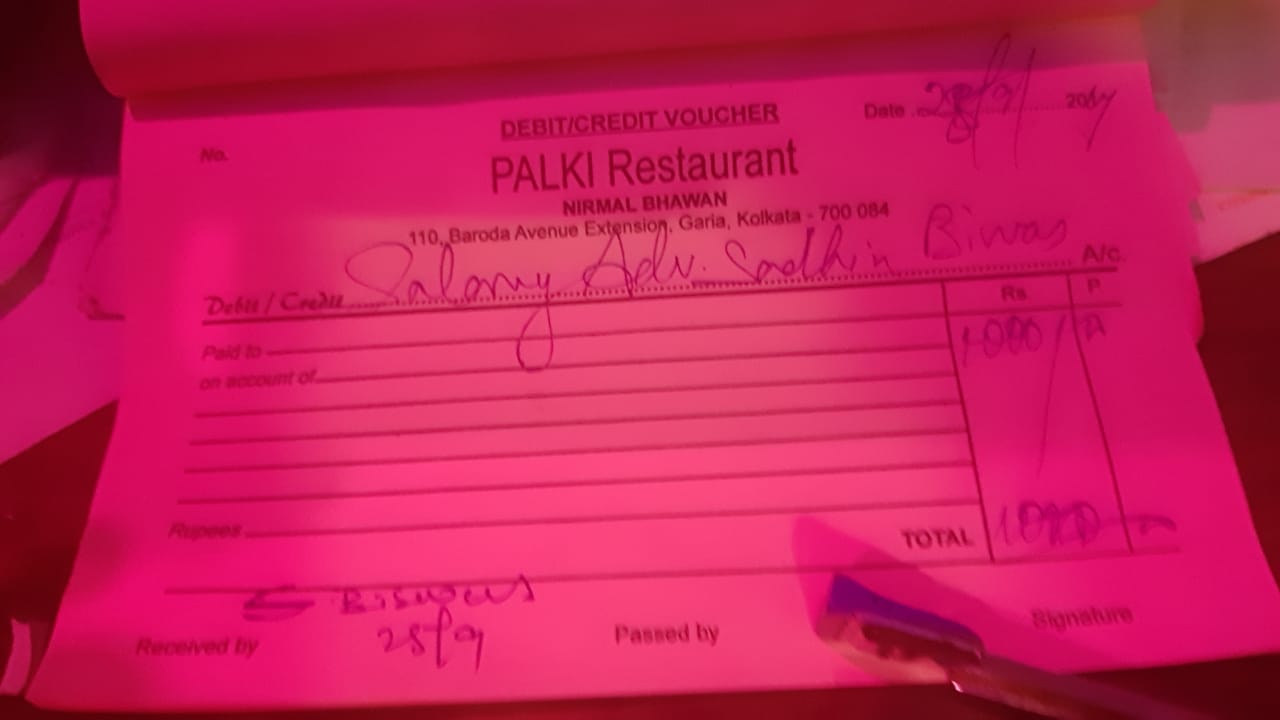 DEBIT/CREDIT VOUCHER
Date 28/9/ 2014
No.
PALKI Restaurant
NIRMAL BHAWAN
110, Baroda Avenue Extension, Garia, Kolkata - 700 084
Debit / Credit Salary Adv. Sadhin Biwas A/c.
Rs. P.
Paid to 1000/
on account of
Rupees
TOTAL 1000
S Biswas
28/9
Received by Passed by Signature